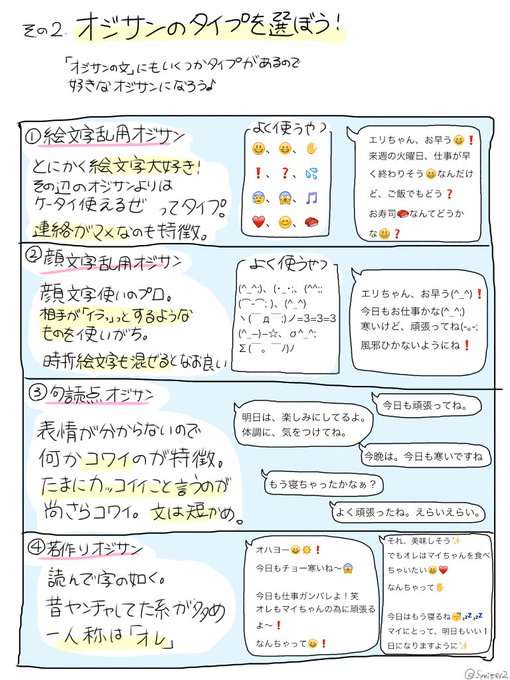 その2. オジサンのタイプを選ぼう!
「オジサンの文」にもいくつかタイプがあるので
好きなオジサンになろう♪
①絵文字乱用オジサン
とにかく絵文字大好き!
その辺のオジサンよりは
ケータイ使えるぜ ってタイプ。
連絡がマメなのも特徴。
よく使うやつ
😃、😄、✋
❗、❓、💦
😰、😱、🎵
❤️、😊、🍖
エリちゃん、お早う😃❗
来週の火曜日、仕事が早
く終わりそう😄なんだけ
ど、ご飯でもどう❓
お寿司🍣なんてどうか
な😃❓
②顔文字乱用オジサン
顔文字使いのプロ。
相手が「イラ」っとするような
ものを使いがち。
時折絵文字も混ぜるとなお良い
よく使うやつ
(^_^;)、(・_・;、(^^;;
(⌒-⌒; )、(^_^)
ヽ(￣д￣;)ノ=3=3=3
(^_−)−☆、σ^_^;
Σ(￣。￣ﾉ)ﾉ
エリちゃん、お早う(^_^)❗
今日もお仕事かな(^_^;)
寒いけど、頑張ってね(-｡-;
風邪ひかないようにね❗
③句読点オジサン
表情が分からないので
何かコワイのが特徴。
たまにカッコイイこと言うのが
尚さらコワイ。文は短かめ。
今日も頑張ってね。
明日は、楽しみにしてるよ。
体調に、気をつけてね。
今晩は。今日も寒いですね
もう寝ちゃったかなぁ?
よく頑張ったね。えらいえらい。
④若作りオジサン
読んで字の如く。
昔ヤンチャしてた系が多め
一人称は「オレ」
オハヨー😄☀️❗
今日もチョー寒いね〜😱
今日も仕事ガンバレよ!笑
オレもマイちゃんの為に頑張る
よ〜❗
なんちゃって😄❗
それ、美味しそう✨
でもオレはマイちゃんを食べ
ちゃいたい😃❤️
なんちゃって✋
今日はもう寝るね😴💤💤
マイにとって、明日もいい1
日になりますように✨